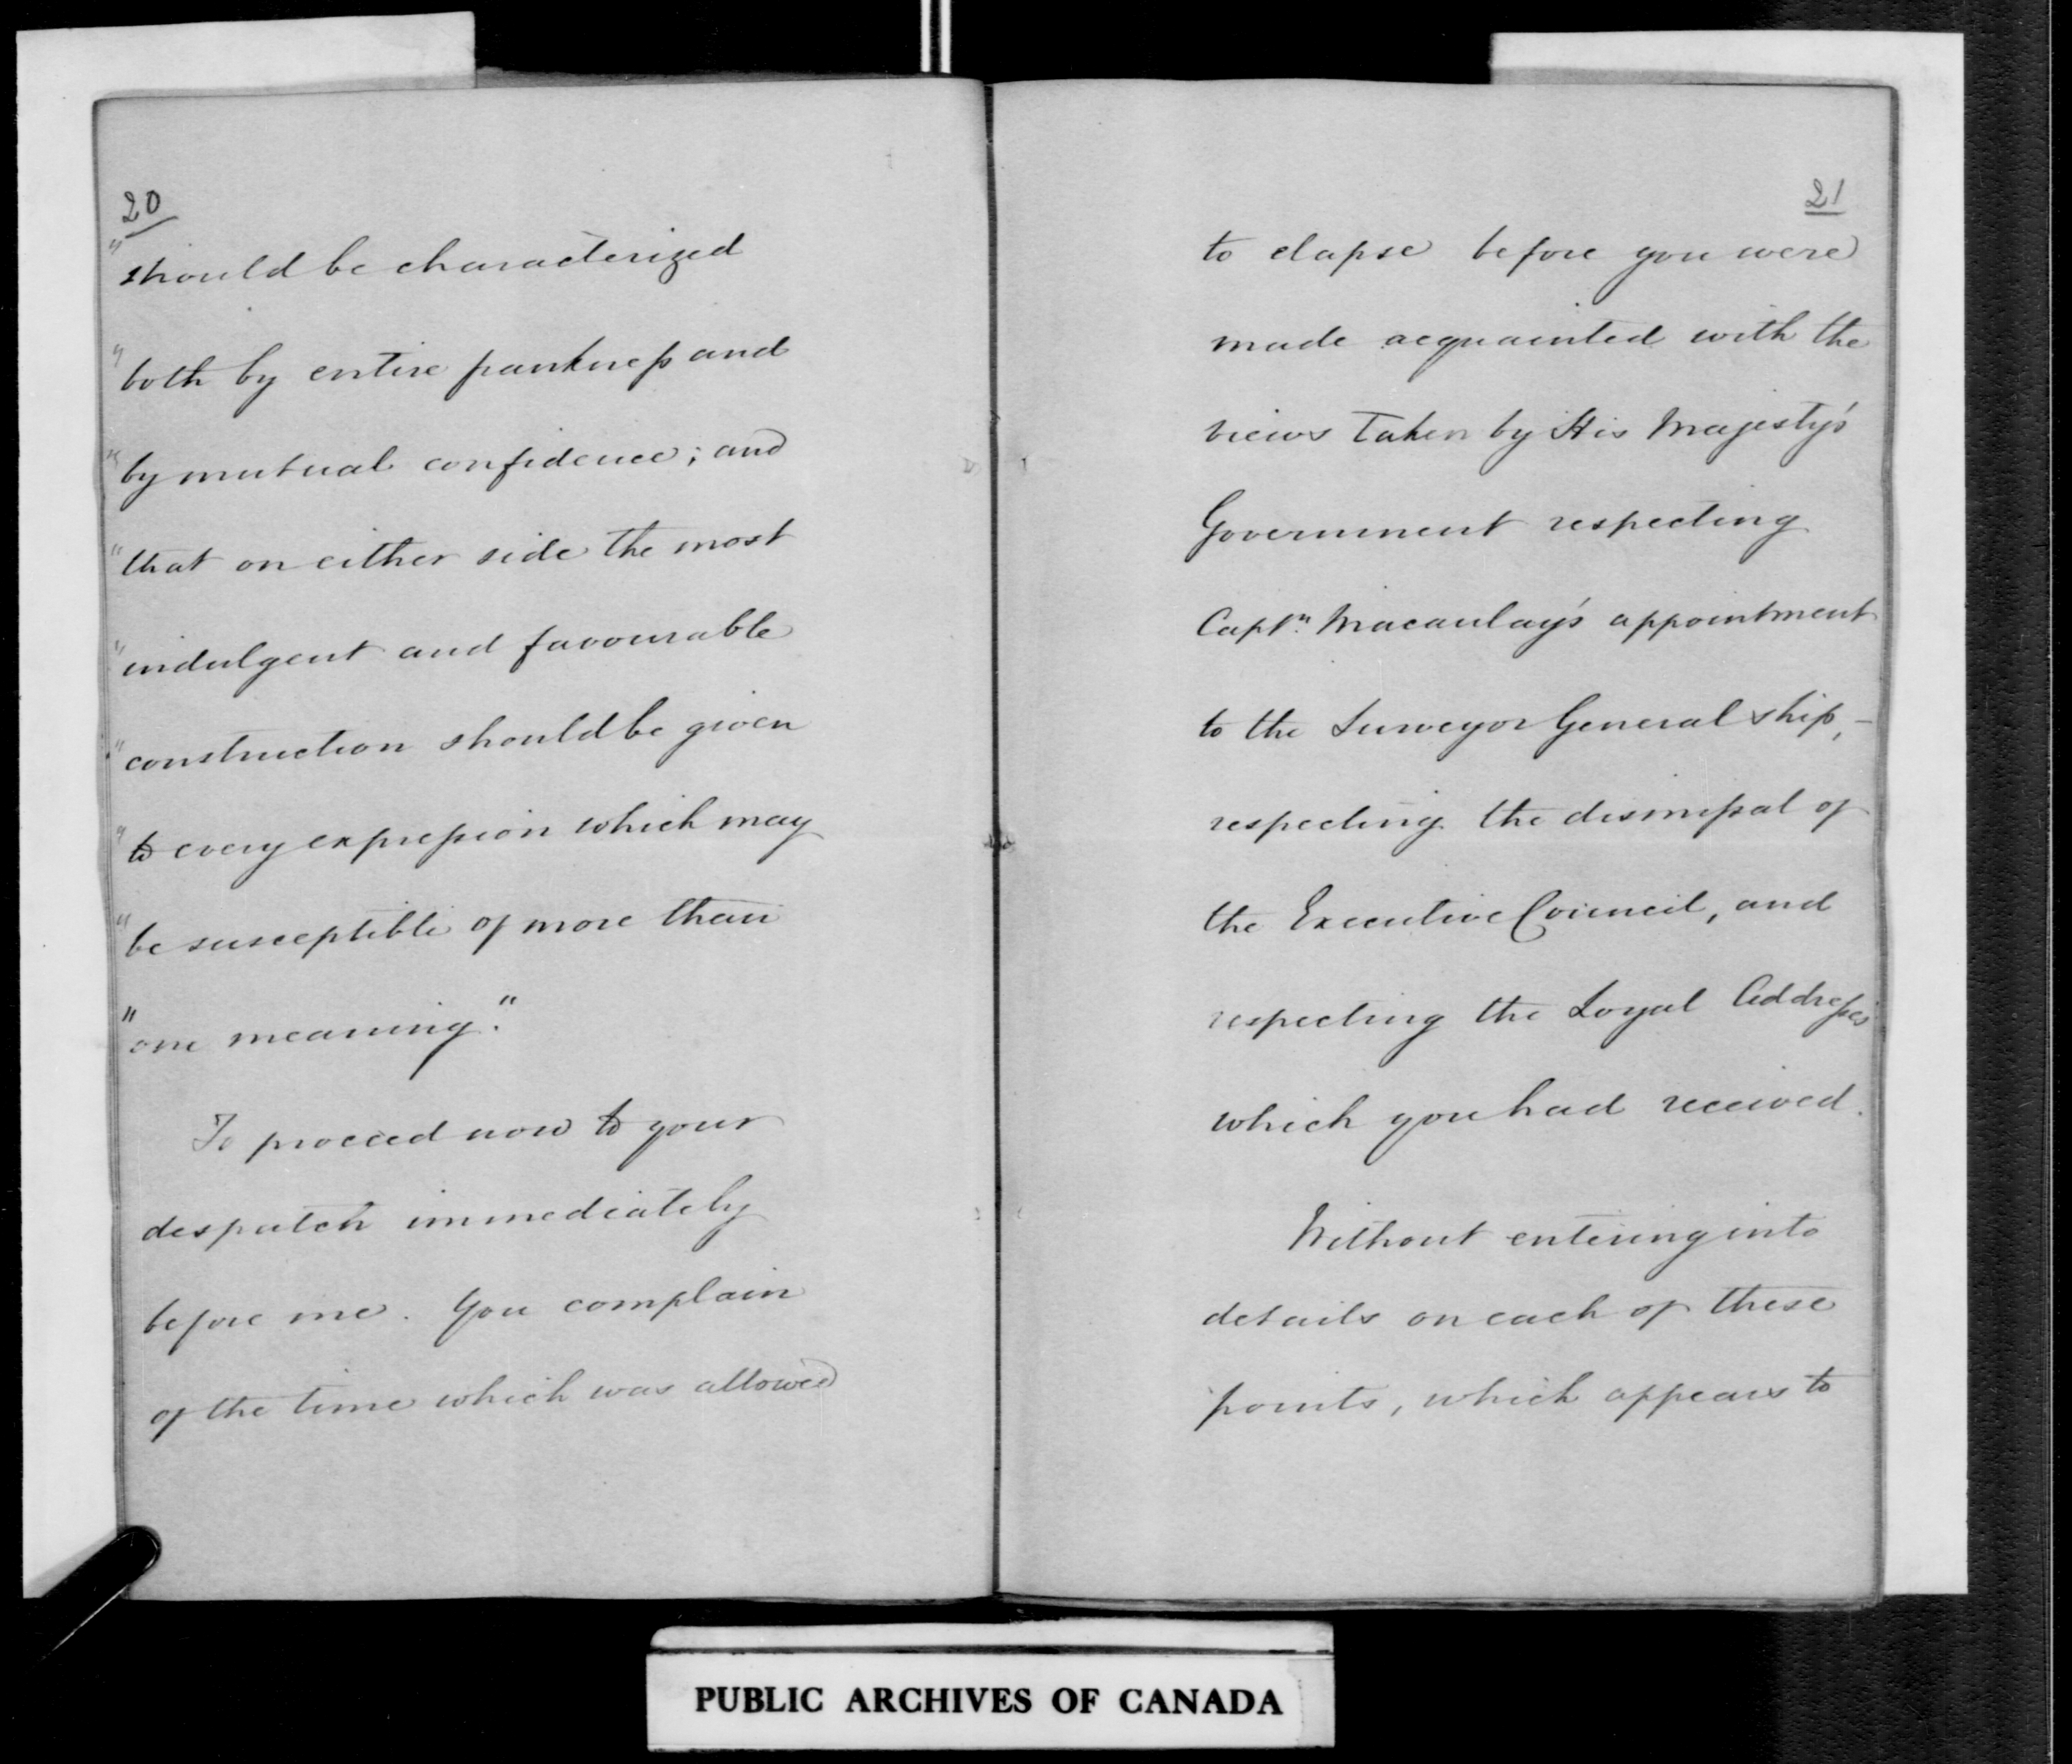 20
"should be characterized
"both by entire frankness and
"by mutual confidence; and
"that on either side the most
"indulgent and favourable
"construction should be given
"to every expression which may
"be susceptible of more than
"one meaning."
To proceed now to your
despatch immediately
before me. You complain
of the time which was allowed
21
to elapse before you were
made acquainted with the
views taken by His Majesty's
Government respecting
Captn. Macaulay's appointment
to the Surveyor General ship, –
respecting the dismissal of
the Executive Council, and
respecting the Loyal Addresses
which you had received.
Without entering into
details on each of these
points, which appears to
PUBLIC ARCHIVES OF CANADA